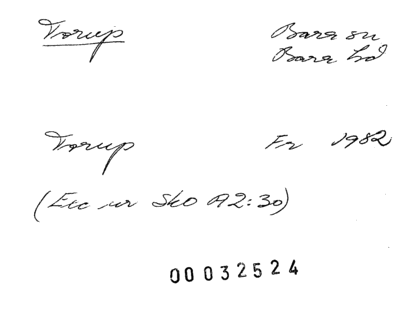 Torup Bara sn
Bara hd
Torup Fr 1982
(Exc ur SkO A2:30)
00032524